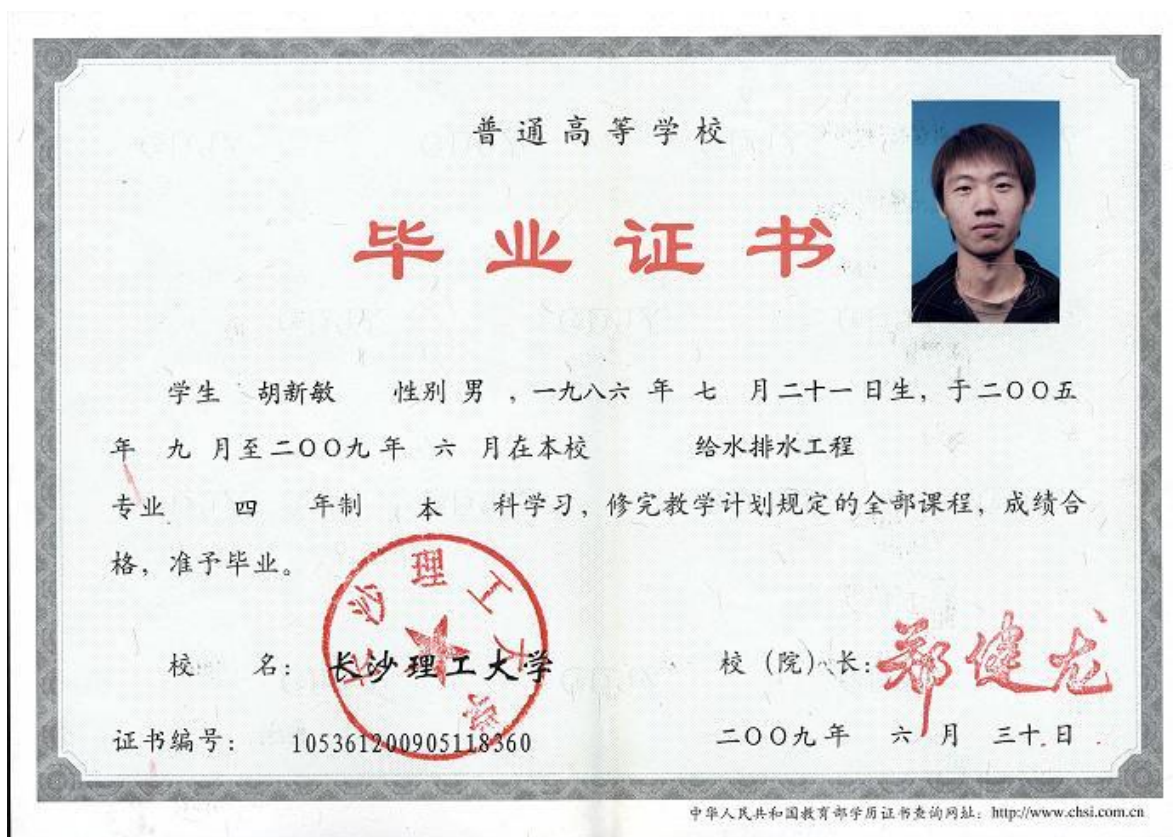 普通高等学校
毕业证书
学生 胡新敏 性别 男 ，一九八六 年 七 月二十一日生，于二〇〇五
年 九 月至二〇〇九年 六 月在本校 给水排水工程
专业 四 年制 本 科学习，修完教学计划规定的全部课程，成绩合
格，准予毕业。
校 名： 长沙理工大学
校（院）长：郑健龙
证书编号： 105361200905118360
二〇〇九年 六 月 三十日
长沙理工大学
中华人民共和国教育部学历证书查询网址：http://www.chsi.com.cn